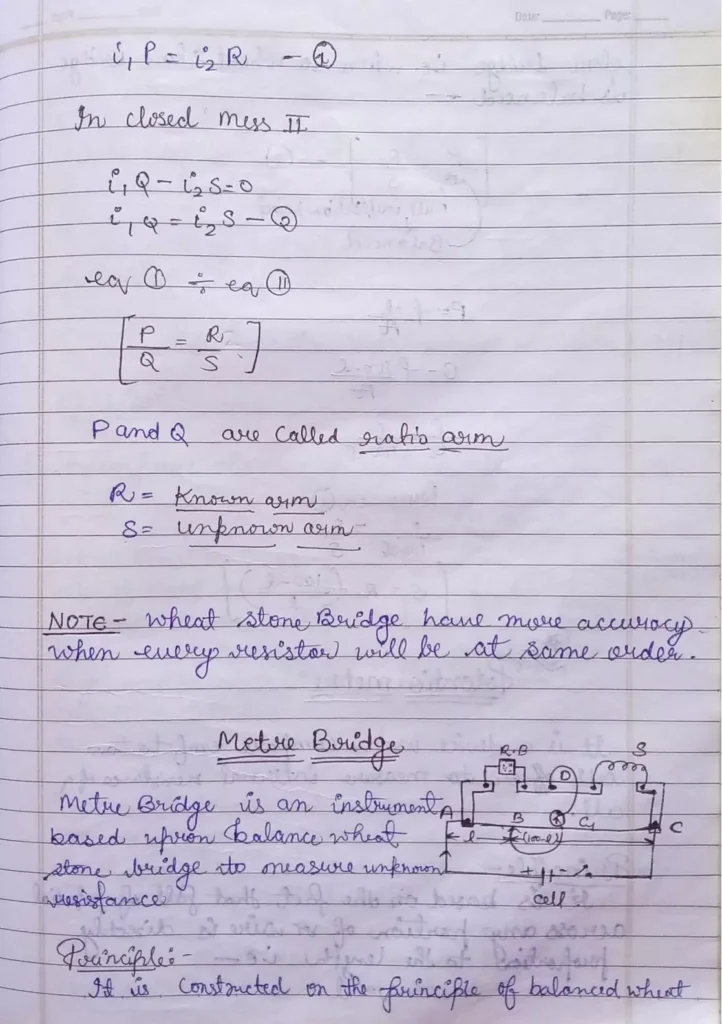 Date: Page:
i₁P = i₂R - ①
In closed mess II
i₁Q - i₂S = 0
i₁Q = i₂S - ②
eq ① ÷ eq ⑪
[P/Q = R/S]
P and Q are called ratio arm
R = Known arm
S = unknown arm
NOTE - wheat stone Bridge have more accuracy
when every resistor will be at same order.
Metre Bridge
R.B S
D
Metre Bridge is an instrument A
B G C
based upron balance wheat
l (100-l)
stone bridge to measure unknown
+ -
resistance
cell
Principle:-
It is constructed on the principle of balanced wheat